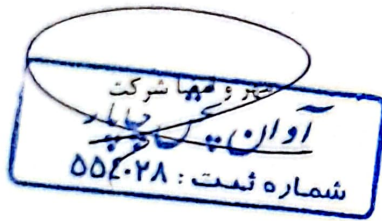 مهر و امضا شرکت
آوان
شماره ثبت : ۵۵۴۰۲۸